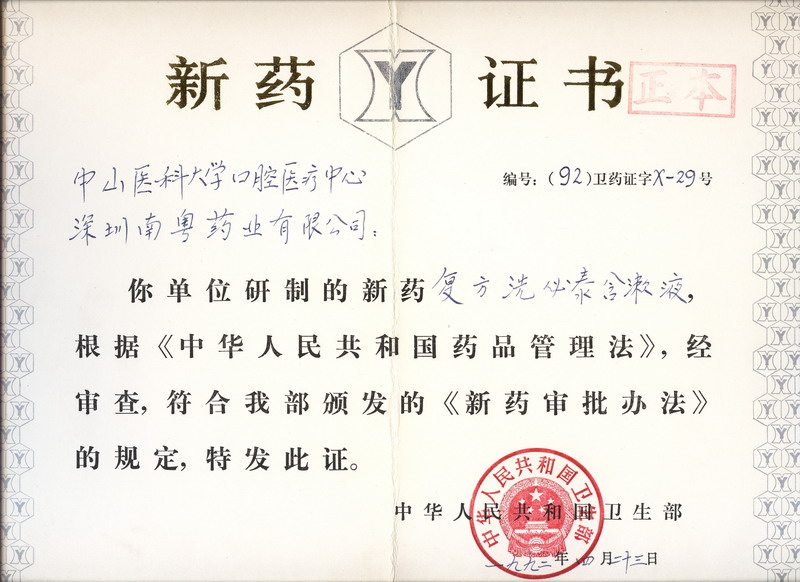 新药证书
正本
编号:(92)卫药证字X-29号
中山医科大学口腔医疗中心
深圳南粤药业有限公司:
你单位研制的新药复方洗必泰含漱液,
根据《中华人民共和国药品管理法》,经
审查,符合我部颁发的《新药审批办法》
的规定,特发此证。
中华人民共和国卫生部
中华人民共和国卫生部
一九九二年四月二十三日